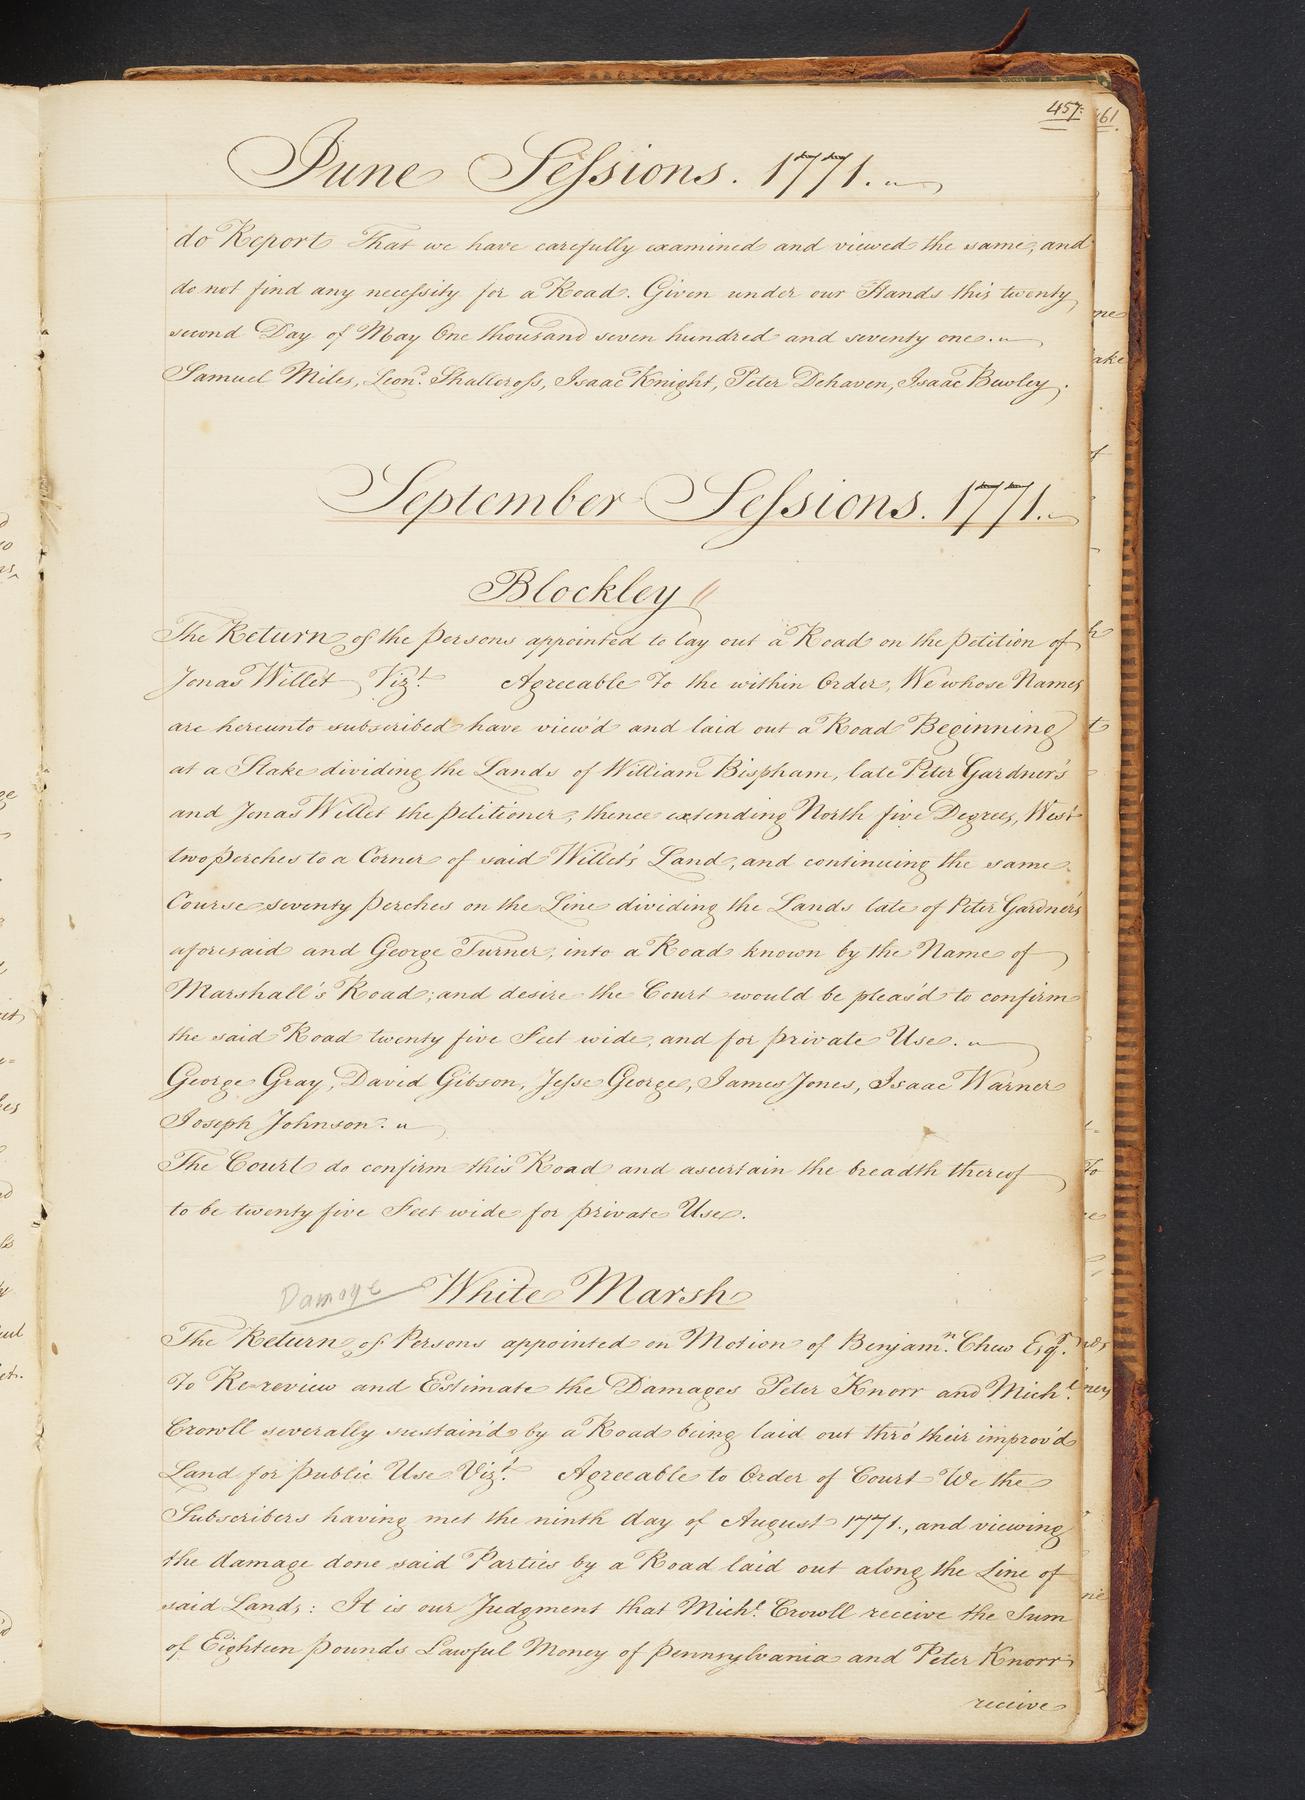 457.
June Sessions. 1771.
do Report That we have carefully examined and viewed the same, and
do not find any necessity for a Road. Given under our Hands this twenty
second Day of May One thousand seven hundred and seventy one.
Samuel Miles, Leond. Shallcross, Isaac Knight, Peter Dehaven, Isaac Bewley.
September Sessions. 1771.
Blockley
The Return of the persons appointed to lay out a Road on the petition of
Jonas Willet Vizt. Agreeable To the within Order, We whose Names
are hereunto subscribed have view'd and laid out a Road Beginning
at a Stake dividing the Lands of William Bispham, late Peter Gardner's
and Jonas Willet the petitioner, thence extending North five Degrees, West
two perches to a Corner of said Willet's Land, and continuing the same
Course seventy perches on the Line dividing the Lands late of Peter Gardner's
aforesaid and George Turner, into a Road known by the Name of
Marshall's Road; and desire the Court would be pleas'd to confirm
the said Road twenty five Feet wide, and for private Use.
George Gray, David Gibson, Jesse George, James Jones, Isaac Warner
Joseph Johnson.
The Court do confirm this Road and ascertain the breadth thereof
to be twenty five Feet wide for private Use.
Damage White Marsh
The Return of Persons appointed on Motion of Benjamn. Chew Esqr.
To Re-review and Estimate the Damages Peter Knorr and Michl.
Crowll severally sustain'd by a Road being laid out thro' their improv'd
Land for public Use Vizt. Agreeable to Order of Court We the
Subscribers having met the ninth day of August 1771., and viewing
the damage done said Parties by a Road laid out along the Line of
said Lands: It is our Judgment that Michl. Crowll receive the Sum
of Eighteen pounds Lawful Money of Pennsylvania and Peter Knorr
receive